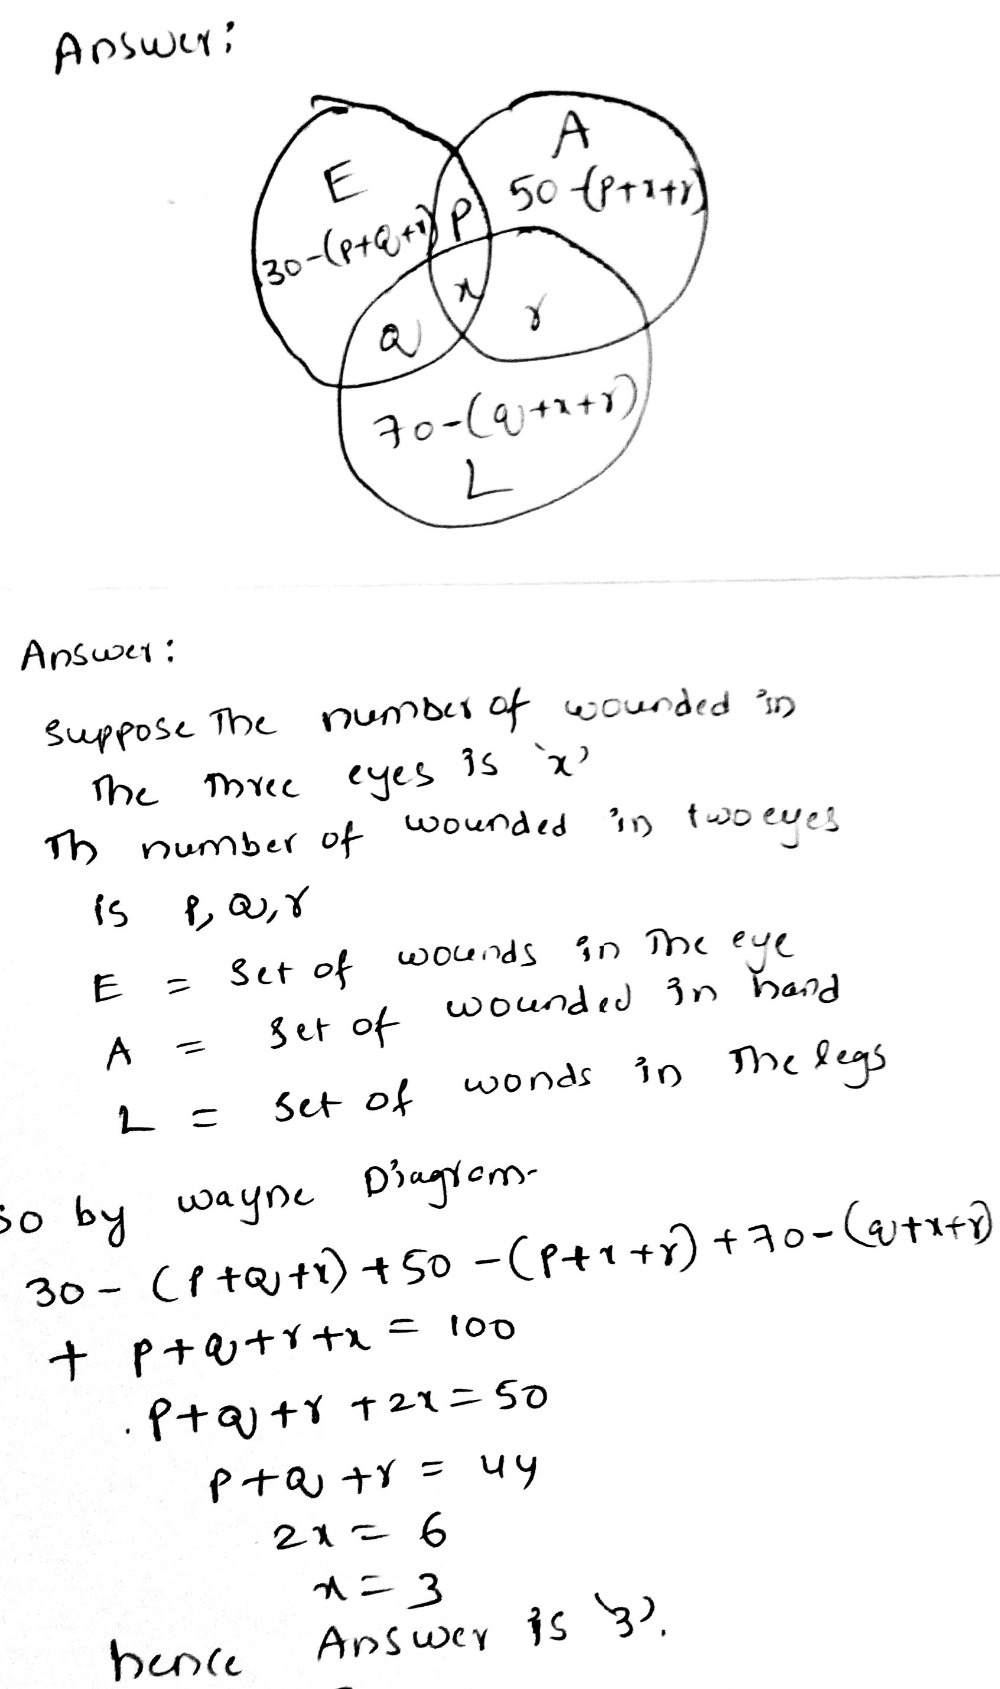 Answer:
E
A
30-(P+Q+x)
P
50-(P+x+r)
x
Q
r
70-(Q+x+r)
L
Answer:
Suppose The number of wounded in
The Three eyes is 'x'
Th number of wounded in two eyes
is P, Q, r
E = Set of wounds in The eye
A = Set of wounded in hand
L = Set of wonds in The legs
So by wayne Diagram-
30 - (P+Q+x) + 50 - (P+x+r) + 70 - (Q+x+r)
+ P+Q+r+x = 100
P+Q+r+2x = 50
P+Q+r = 44
2x = 6
x = 3
hence Answer is '3'.